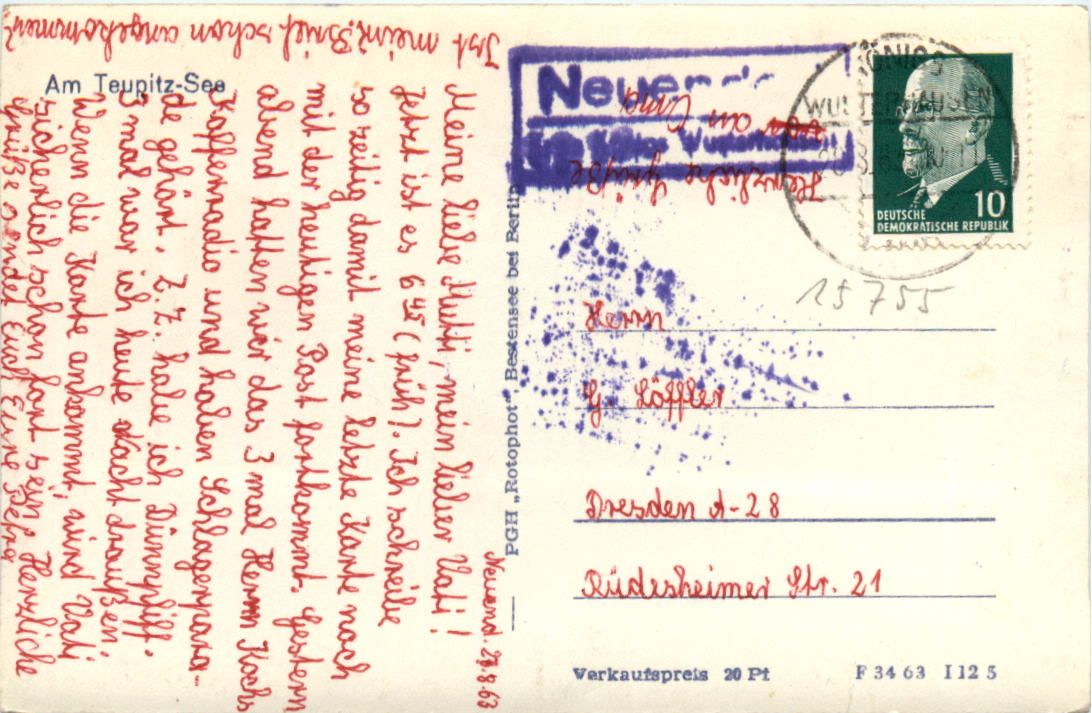 Am Teupitz-See
Ist mein Brief schon angekommen?
Neuend. 28.8.63
Meine liebe Mutti, mein lieber Vati!
Jetzt ist es 6 45 (früh). Ich schreibe
so zeitig damit meine letzte Karte noch
mit der heutigen Post fortkommt. Gestern
abend hatten wir das 3 mal Herrn Kochs
Kofferradio und haben Schlagerpara-
de gehört. Z.Z. habe ich Dünnpfiff.
3 mal war ich heute Nacht draußen.
Wenn die Karte ankommt, wird Vati
sicherlich schon fort sein. Herzliche
Grüße sendet Euch
PGH „Rotophot", Bestensee bei Berlin
Neuend
über Königs Wusterhausen
Herzliche Grüße
an
KÖNIGS
WUSTERHAUSEN
10
DEUTSCHE
DEMOKRATISCHE REPUBLIK
15755
Herrn
G. Löffler
Dresden A-28
Rüdesheimer Str. 21
Verkaufspreis 20 Pf
F 34 63 I 12 5